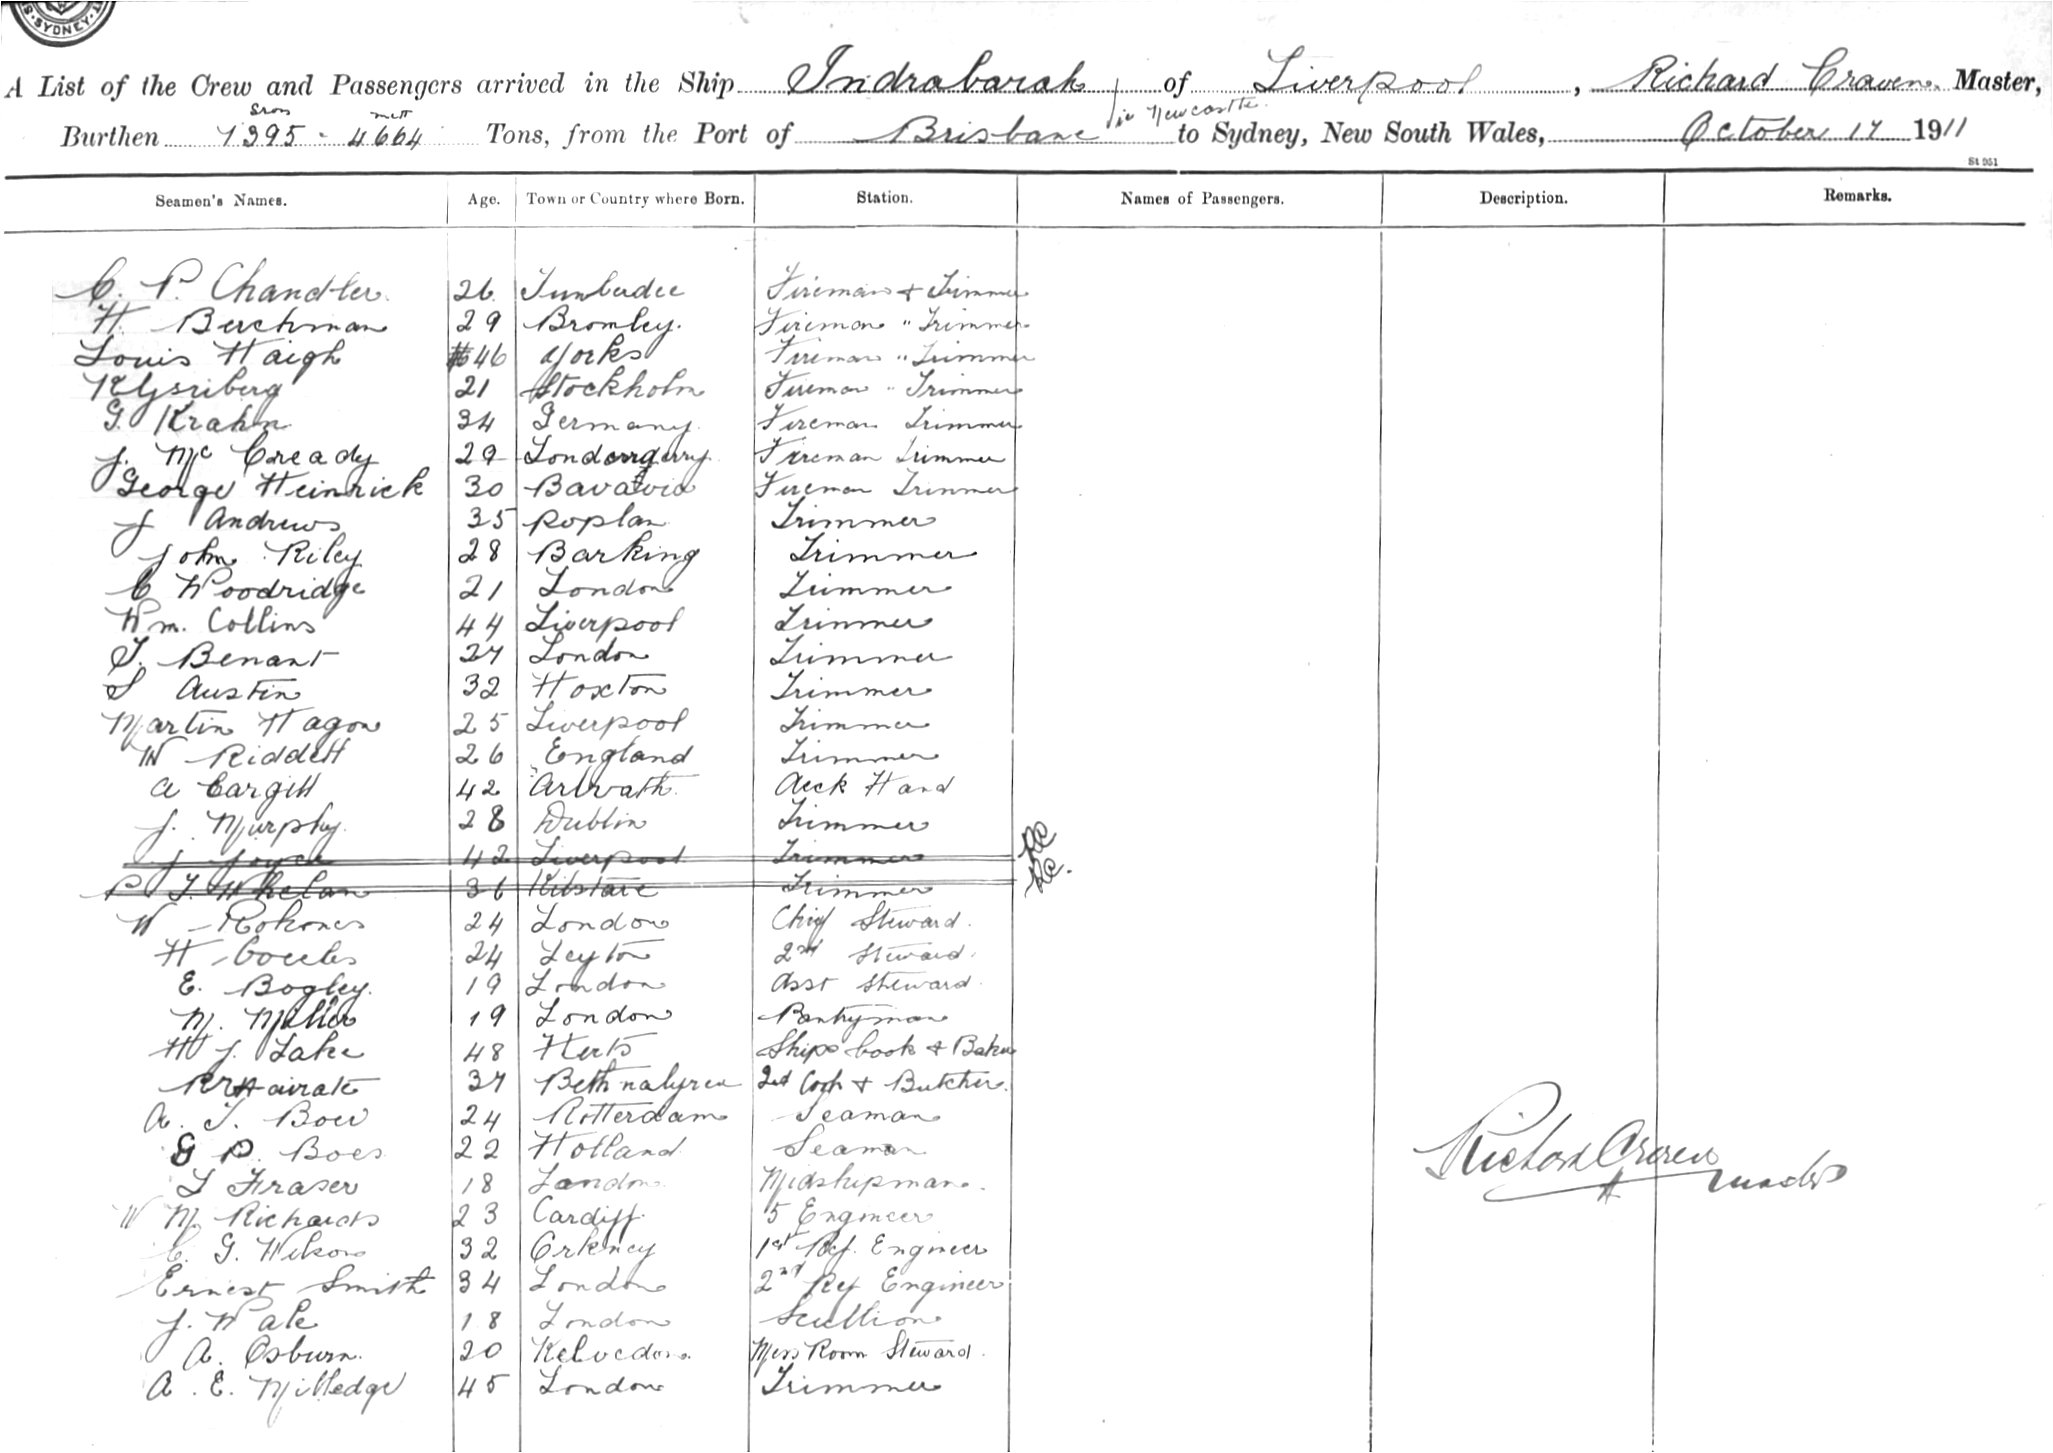 SYDNEY
A List of the Crew and Passengers arrived in the Ship Indrabarah of Liverpool, Richard Craven Master,
Burthen 7395 - 4664 Tons, from the Port of Brisbane via Newcastle to Sydney, New South Wales, October 17 1911
St 951
Seamen's Names. Age. Town or Country where Born. Station. Names of Passengers. Description. Remarks.
C. P. Chandler 26 Fireman & Trimmer
H. Berchman 29 Bromley. Fireman " Trimmer
Louis Haigh 46 Yorks Fireman " Trimmer
21 Stockholm Fireman " Trimmer
G. Krahn 34 Germany Fireman Trimmer
J. McCready 29 Fireman Trimmer
George Heinrick 30 Fireman Trimmer
J Andrews 35 Poplan Trimmer
John Riley 28 Barking Trimmer
C Woodridge 21 London Trimmer
Wm. Collins 44 Liverpool Trimmer
T. Benant 27 London Trimmer
S Austin 32 Hoxton Trimmer
Martin Hagon 25 Liverpool Trimmer
W Riddell 26 England Trimmer
A Cargill 42 Deck Hand
J. Murphy 28 Dublin Trimmer
J Joyce 42 Liverpool Trimmer
P T. Whelan 36 Trimmer
W 24 London Chief Steward.
H 24 Leyton 2nd Steward.
E. Bogley. 19 London Asst Steward.
M. Miller 19 London Pantryman
H J. Lake 48 Herts Ships Cook & Baker
37 Bethnalgreen 2nd Cook & Butcher.
A. T. 24 Rotterdam Seaman
G P. Boes 22 Holland Seaman
T Fraser 18 London Midshipman.
W M Richards 23 Cardiff 5 Engineer
C. G. Wilson 32 Orkney 1st Ref. Engineer
Ernest Smith 34 London 2nd Ref Engineer
J. Wale 18 London Scullion
A. Osburn. 20 Kelvedon. Mess Room Steward.
A. E. Milledge 45 London Trimmer
Richard Craven
Master